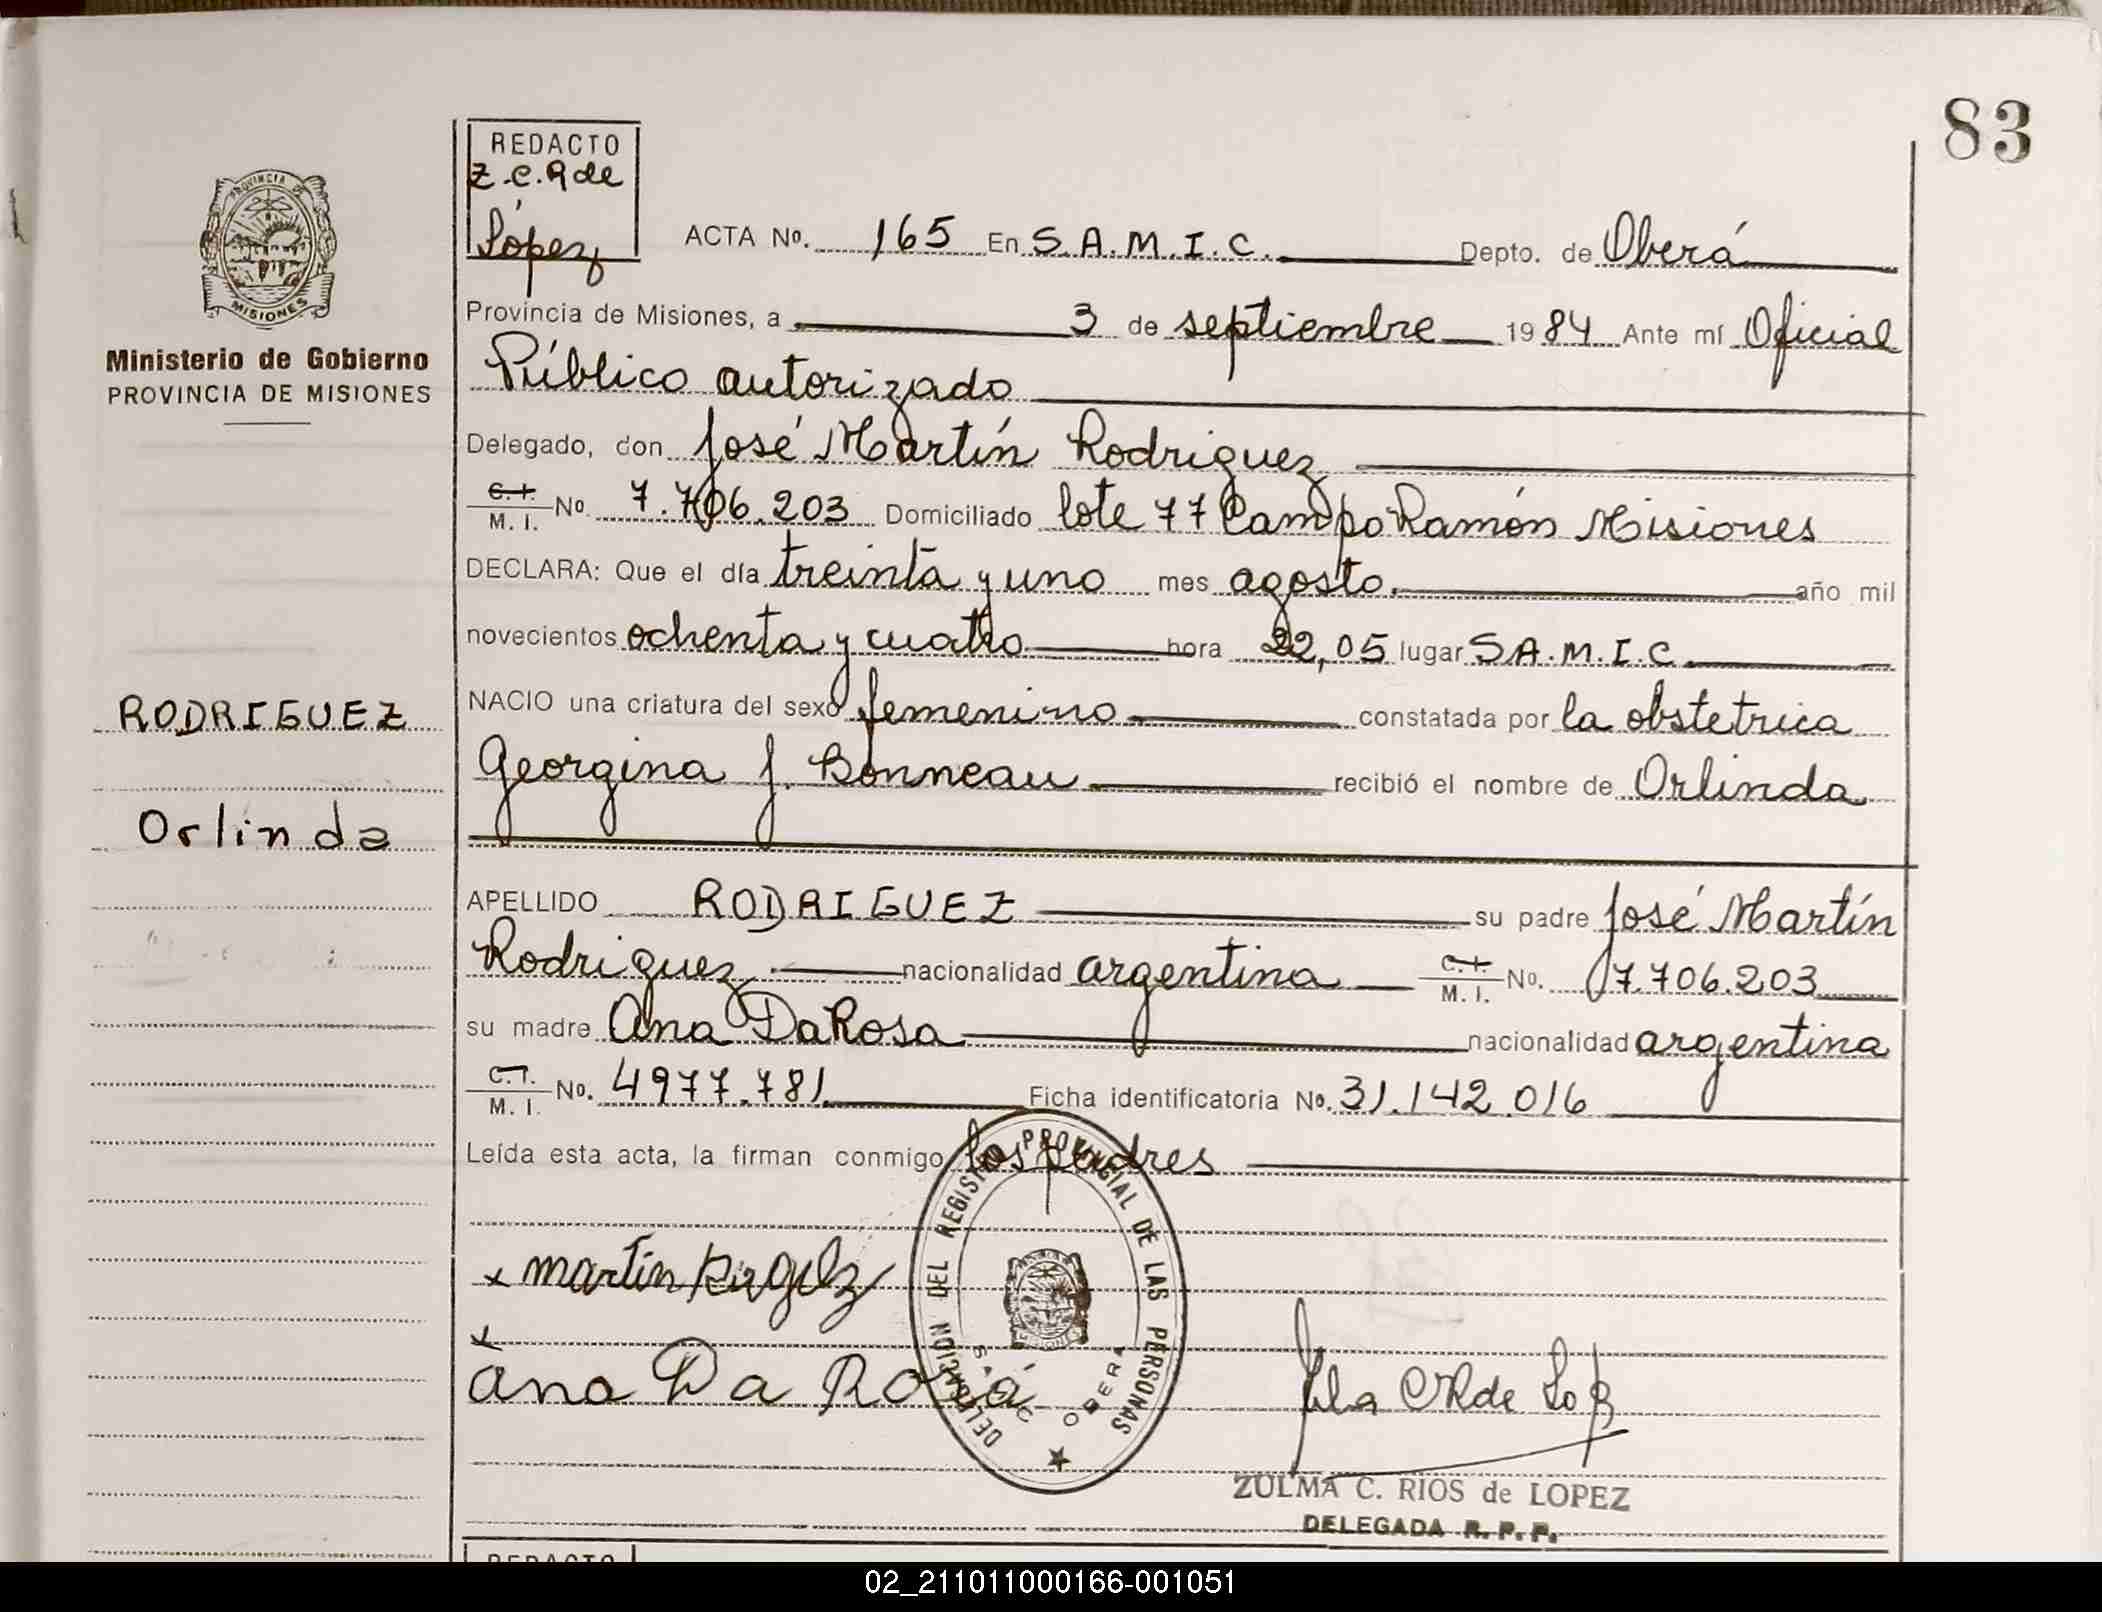 83
REDACTO
Z.C.R de
López
PROVINCIA DE
MISIONES
Ministerio de Gobierno
PROVINCIA DE MISIONES
ACTA Nº. 165 En S.A.M.I.C. Depto. de Oberá
Provincia de Misiones, a 3 de septiembre 1984 Ante mí Oficial
Público autorizado
Delegado, don José Martín Rodriguez
C.I. M.I. Nº 7.706.203 Domiciliado lote 77 Campo Ramón Misiones
DECLARA: Que el día treinta y uno mes agosto. año mil
novecientos ochenta y cuatro hora 22,05 lugar S.A.M.I.C.
NACIO una criatura del sexo femenino constatada por la obstetrica
Georgina J. Bonneau recibió el nombre de Orlinda
RODRIGUEZ
Orlinda
APELLIDO RODRIGUEZ su padre José Martín
Rodriguez. nacionalidad argentina C.I. M.I. Nº. 7.706.203
su madre Ana DaRosa nacionalidad argentina
C.I. M.I. Nº. 4977.781 Ficha identificatoria Nº. 31.142.016
Leída esta acta, la firman conmigo los padres
DELEGACION DEL REGISTRO PROVINCIAL DE LAS PERSONAS
S.A.M.I.C. OBERA
x martin
x
Ana Da Rosa
ZULMA C. RIOS de LOPEZ
DELEGADA R. P. P.
REDACTO
02_211011000166-001051